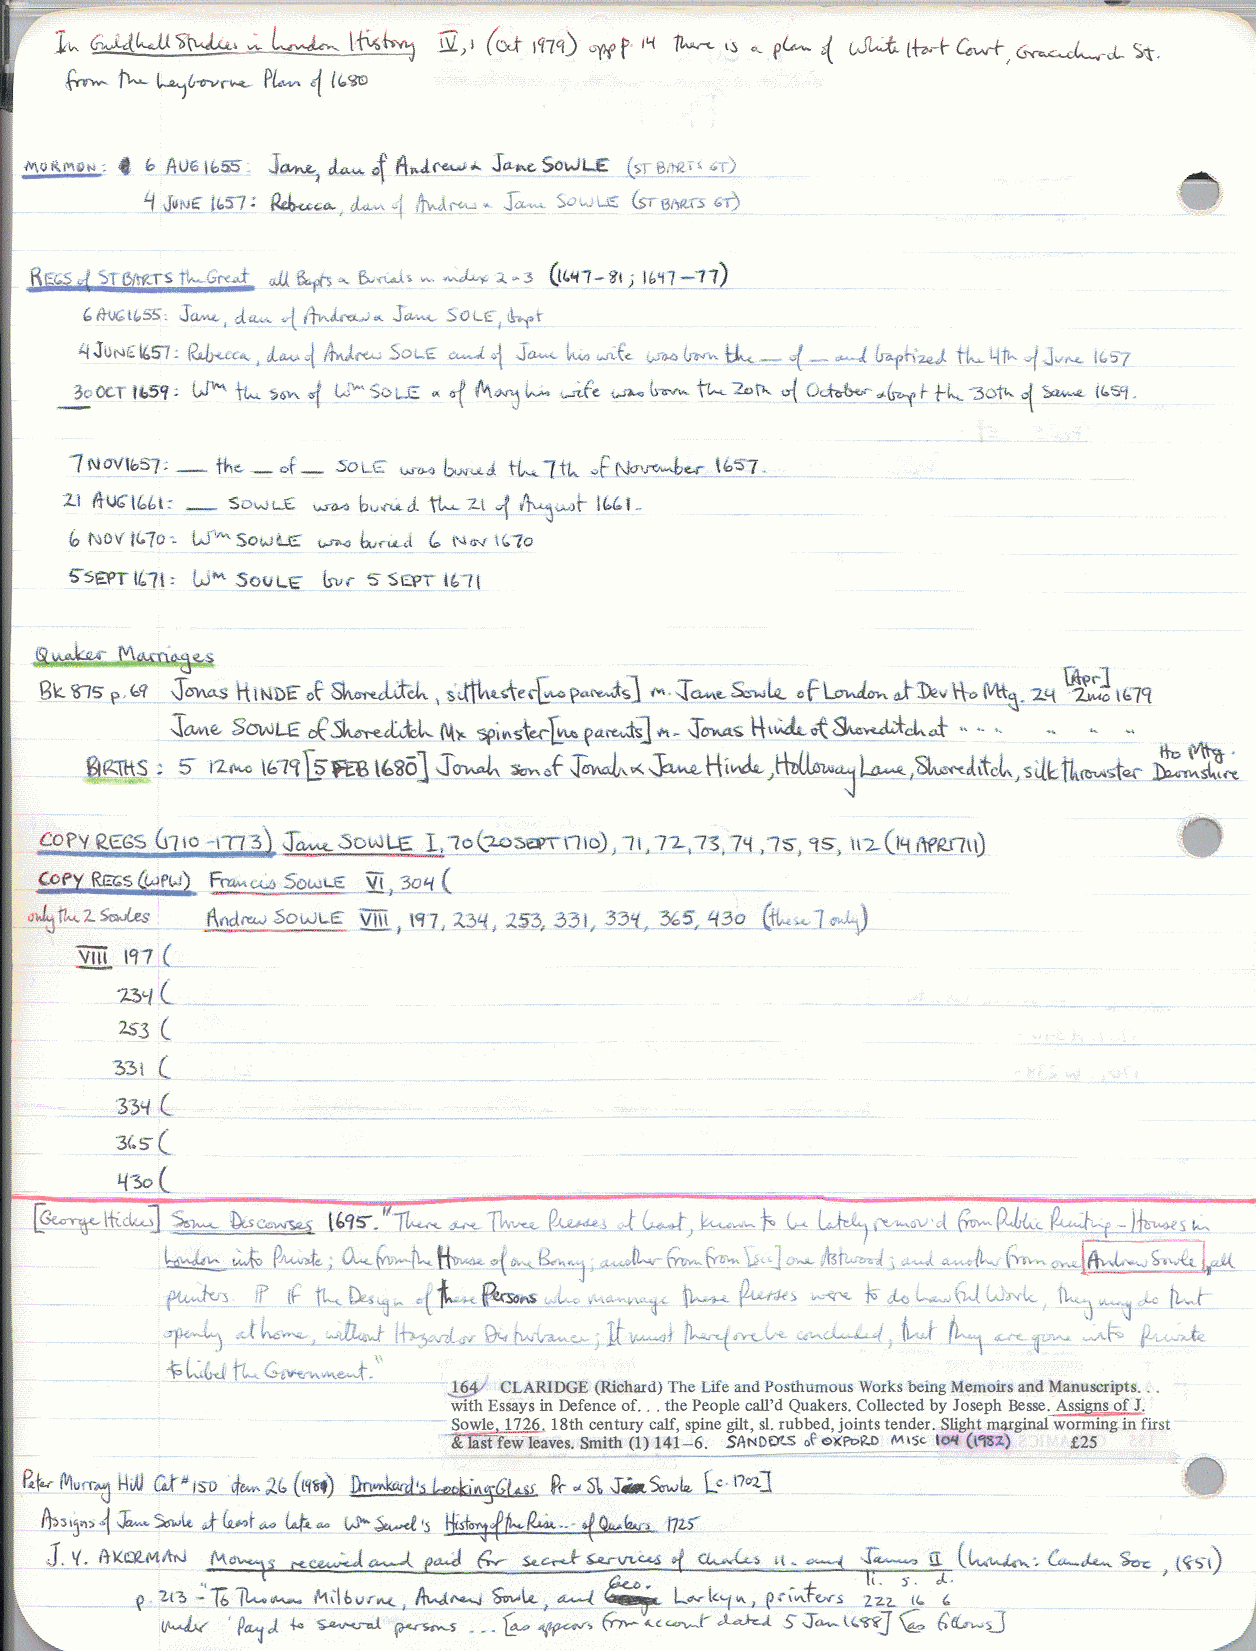 In Guildhall Studies in London History IV, 1 (Oct 1979) opp p. 14 There is a plan of White Hart Court, Gracechurch St.
from the Leybourne Plan of 1680
MORMON: 6 AUG 1655: Jane, dau of Andrew & Jane SOWLE (ST BARTS GT)
4 JUNE 1657: Rebecca, dau of Andrew & Jane SOWLE (ST BARTS GT)
REGS of ST BARTS the Great all Bapts & Burials in index 2-3 (1647-81; 1647-77)
6 AUG 1655: Jane, dau of Andrew & Jane SOLE, bapt
4 JUNE 1657: Rebecca, dau of Andrew SOLE and of Jane his wife was born the — of — and baptized the 4th of June 1657
30 OCT 1659: Wm the son of Wm SOLE & of Mary his wife was born the 20th of October & bapt the 30th of same 1659.
7 NOV 1657: — the — of — SOLE was buried the 7th of November 1657.
21 AUG 1661: — SOWLE was buried the 21 of August 1661.
6 NOV 1670: Wm SOWLE was buried 6 Nov 1670
5 SEPT 1671: Wm SOULE bur 5 SEPT 1671
Quaker Marriages
Bk 875 p. 69 Jonas HINDE of Shoreditch, [no parents] m. Jane Sowle of London at Dev Ho Mtg. 24 2mo [Apr] 1679
Jane SOWLE of Shoreditch Mx spinster [no parents] m. Jonas Hinde of Shoreditch at " " " " " "
BIRTHS: 5 12mo 1679 [5 FEB 1680] Jonah son of Jonah & Jane Hinde, Holloway Lane, Shoreditch, silk throwster Devonshire Ho Mtg.
COPY REGS (1710-1773) Jane SOWLE I, 70 (20 SEPT 1710), 71, 72, 73, 74, 75, 95, 112 (14 APR 1711)
COPY REGS (WPW) Francis SOWLE VI, 304 (
only the 2 Sowles Andrew SOWLE VIII, 197, 234, 253, 331, 334, 365, 430 (these 7 only)
VIII 197 (
234 (
253 (
331 (
334 (
365 (
430 (
[George Hickes] Some Discourses 1695. "There are Three Presses at least, known to be lately remov'd from Public Printing-Houses in
London into Private; One from the House of one Bonny; another from from [sic] one Astwood; and another from one Andrew Sowle, all
printers. If the Design of these Persons who mannage these Presses were to do Lawful Work, they may do that
openly at home, without Hazard or Disturbance; It must therefore be concluded, that they are gone into Private
to Libel the Government."
164 CLARIDGE (Richard) The Life and Posthumous Works being Memoirs and Manuscripts. . .
with Essays in Defence of. . . the People call'd Quakers. Collected by Joseph Besse. Assigns of J.
Sowle, 1726. 18th century calf, spine gilt, sl. rubbed, joints tender. Slight marginal worming in first
& last few leaves. Smith (1) 141–6. SANDERS of OXFORD MISC 104 (1982) £25
Peter Murray Hill Cat #150 item 26 Drunkard's Looking-Glass Pr & Sb J Sowle [c. 1702]
Assigns of Jane Sowle at least as late as Wm Sewel's History of the Rise... of Quakers 1725
J. Y. AKERMAN Moneys received and paid for secret services of Charles II. and James II (London: Camden Soc, 1851)
li. s. d.
p. 213 - "To Thomas Milburne, Andrew Sowle, and Geo. Larkyn, printers 222 16 6
under 'Payd to several persons ... [as appears from account dated 5 Jan 1688] [as follows]